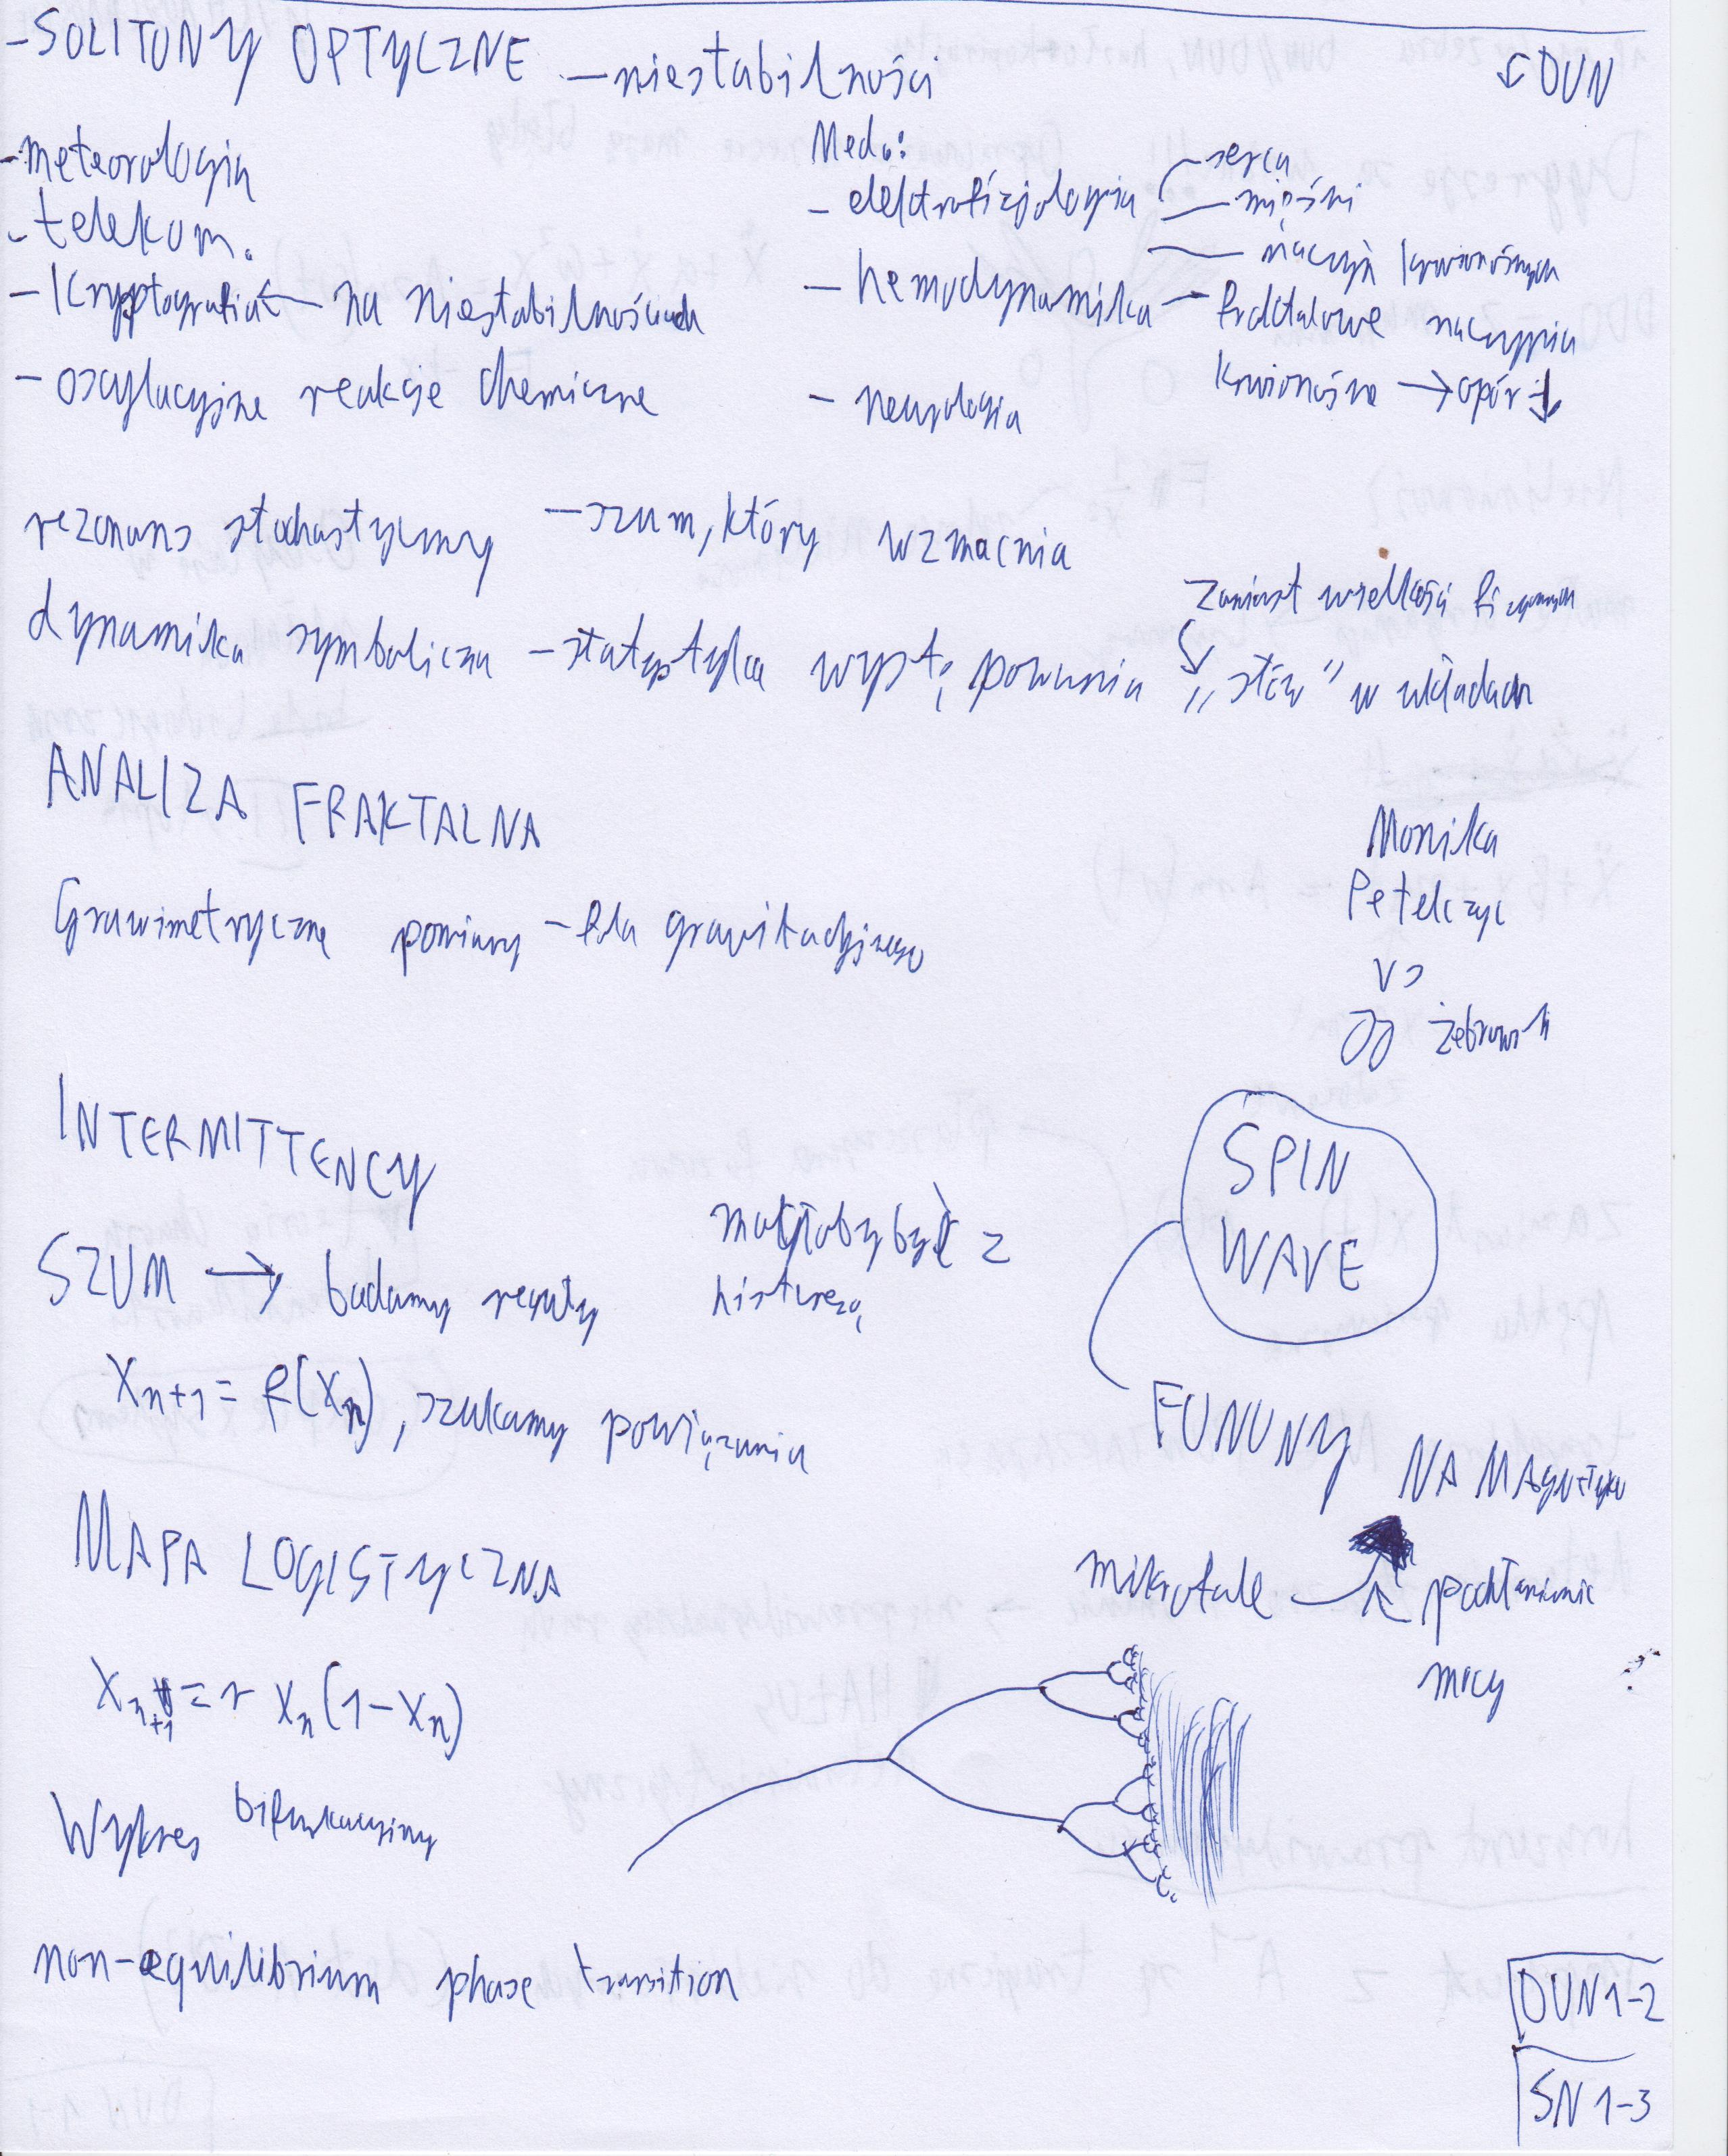 - SOLITONY OPTYCZNE - niestabilności
↙ DUN
- meteorologia
- telekom.
- Kryptografia ← na niestabilnościach
- oscylacyjne reakcje chemiczne
Med.:
- elektrofizjologia
- serca
- mięśni
- naczyń krwionośnych
- hemodynamika → fraktalowe naczynia
krwionośne → opór ↓
- neurologia
rezonans stochastyczny - szum, który wzmacnia
zamiast wielkości fizycznych
dynamika symboliczna - statystyka występowania „słów” w układach
ANALIZA FRAKTALNA
Grawimetryczne pomiary - pola grawitacyjnego
Monika
Petelczyc
vs
JJ Żebrowski
INTERMITTENCY
SZUM → badamy reguły
mogłaby być z
histerezą
X n+1 = f(Xn), szukamy powiązania
SPIN
WAVE
FONONY NA MAGNETYKU
mikrofale
pochłanianie
mocy
MAPA LOGISTYCZNA
X n+1 = r Xn(1-Xn)
Wykres bifurkacyjny
non-equilibrium phase transition
DUN 1-2
SN 1-3